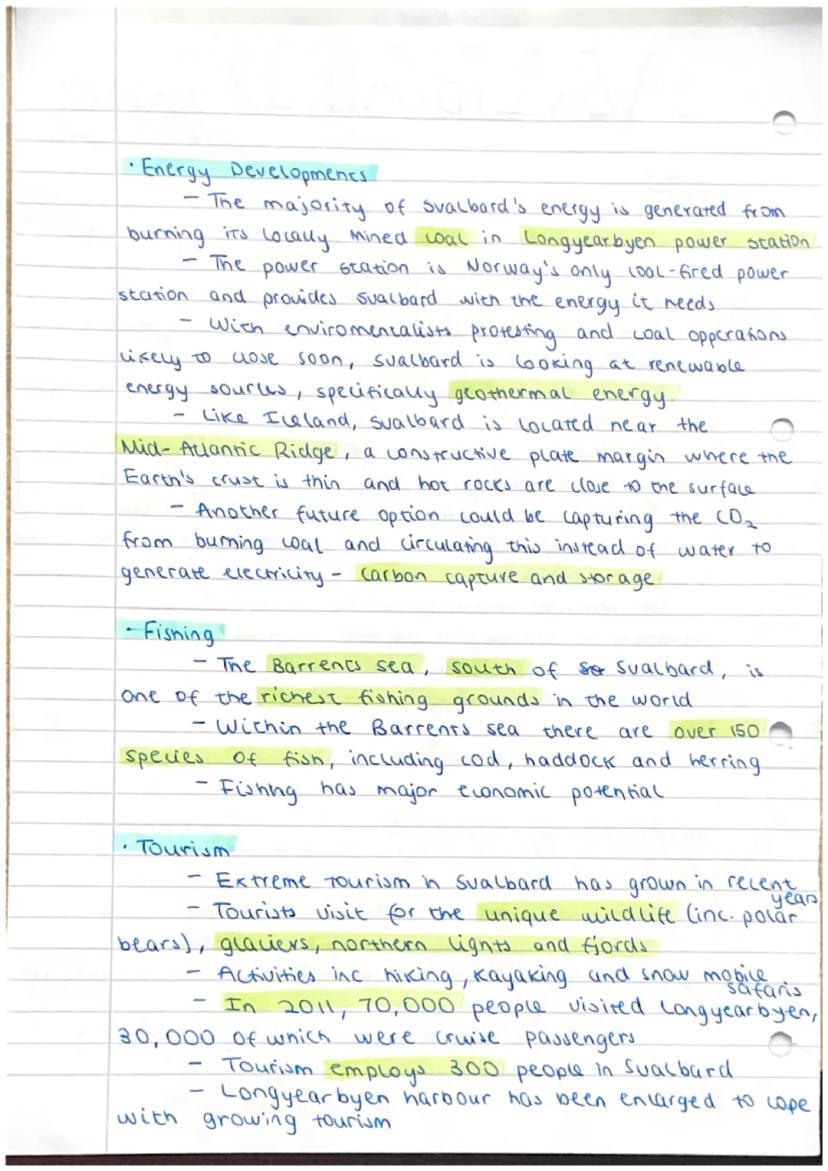 · Energy Developments
- The majority of Svalbard's energy is generated from
burning its locally mined coal in Longyearbyen power station
- The power station is Norway's only cool-fired power
station and provides Svalbard with the energy it needs
- With enviromentalists protesting and coal opperations
likely to close soon, Svalbard is looking at renewable
energy sources, specifically geothermal energy.
- Like Iceland, Svalbard is located near the
Mid-Atlantic Ridge, a constructive plate margin where the
Earth's crust is thin and hot rocks are close to the surface
- Another future option could be capturing the CO₂
from burning coal and circulating this instead of water to
generate electricity - carbon capture and storage
· Fishing
- The Barrents sea, south of Svalbard, is
one of the richest fishing grounds in the world
- Within the Barrents sea there are over 150
species of fish, including cod, haddock and herring
- Fishing has major economic potential
· Tourism
- Extreme tourism in Svalbard has grown in recent
years
- Tourists visit for the unique wildlife (inc. polar
bears), glaciers, northern lights and fjords
- Activities inc hiking, kayaking and snow mobile
safaris
- In 2011, 70,000 people visited Longyearbyen,
30,000 of which were cruise passengers
- Tourism employs 300 people in Svalbard
- Longyearbyen harbour has been enlarged to cope
with growing tourism